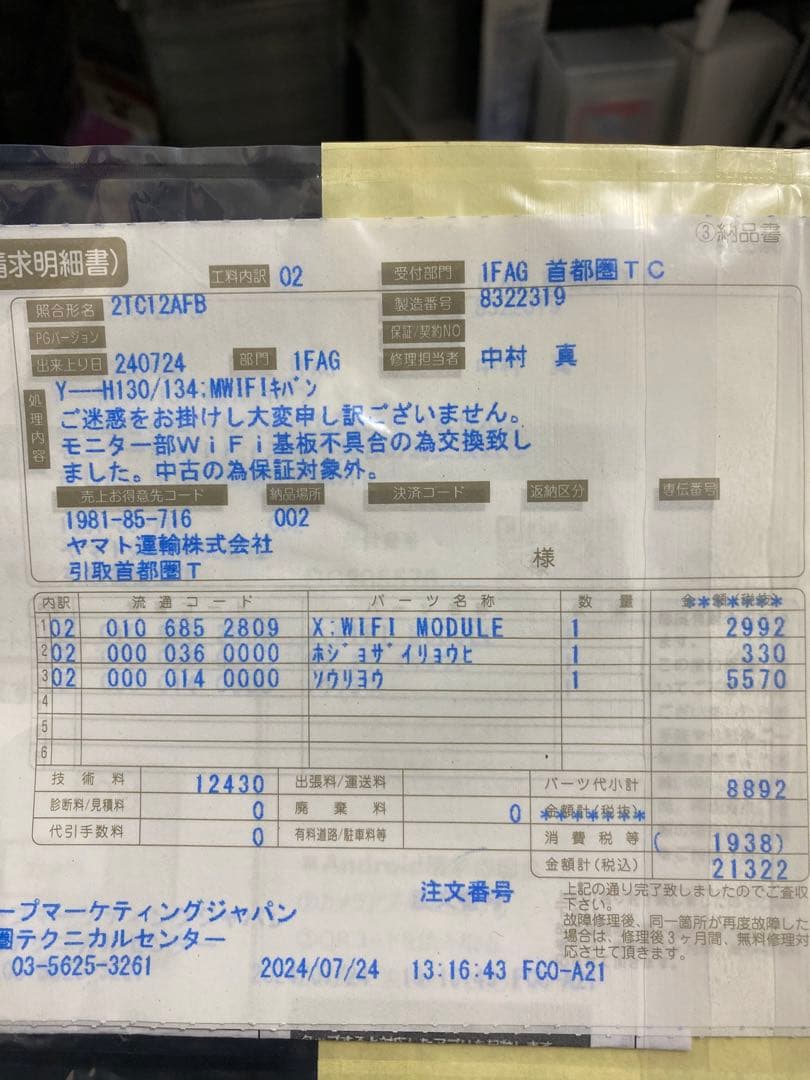 ③納品書
請求明細書)
工料内訳 02 受付部門 1FAG 首都圏TC
照合形名 2TC12AFB 製造番号 8322319
PGバージョン 保証/契約NO
出来上り日 240724 部門 1FAG 修理担当者 中村 真
処理内容
Y---H130/134:MWIFIキバン
ご迷惑をお掛けし大変申し訳ございません。
モニター部WiFi基板不具合の為交換致し
ました。中古の為保証対象外。
売上お得意先コード 納品場所 決済コード 返納区分 専伝番号
1981-85-716 002
ヤマト運輸株式会社
引取首都圏T 様
内訳 流通コード パーツ名称 数量 金額(税抜)
1 02 010 685 2809 X:WIFI MODULE 1 2992
2 02 000 036 0000 ホジョザイリョウヒ 1 330
3 02 000 014 0000 ソウリョウ 1 5570
4
5
6
技術料 12430 出張料/運送料 パーツ代小計 8892
診断料/見積料 0 廃棄料 0 金額計(税抜) *******
代引手数料 0 有料道路/駐車料等 消費税等 ( 1938)
金額計(税込) 21322
注文番号
上記の通り完了致しましたのでご査収
下さい。
故障修理後、同一箇所が再度故障した
場合は、修理後3ヶ月間、無料修理対
応させて頂きます。
ープマーケティングジャパン
圏テクニカルセンター
03-5625-3261 2024/07/24 13:16:43 FCO-A21